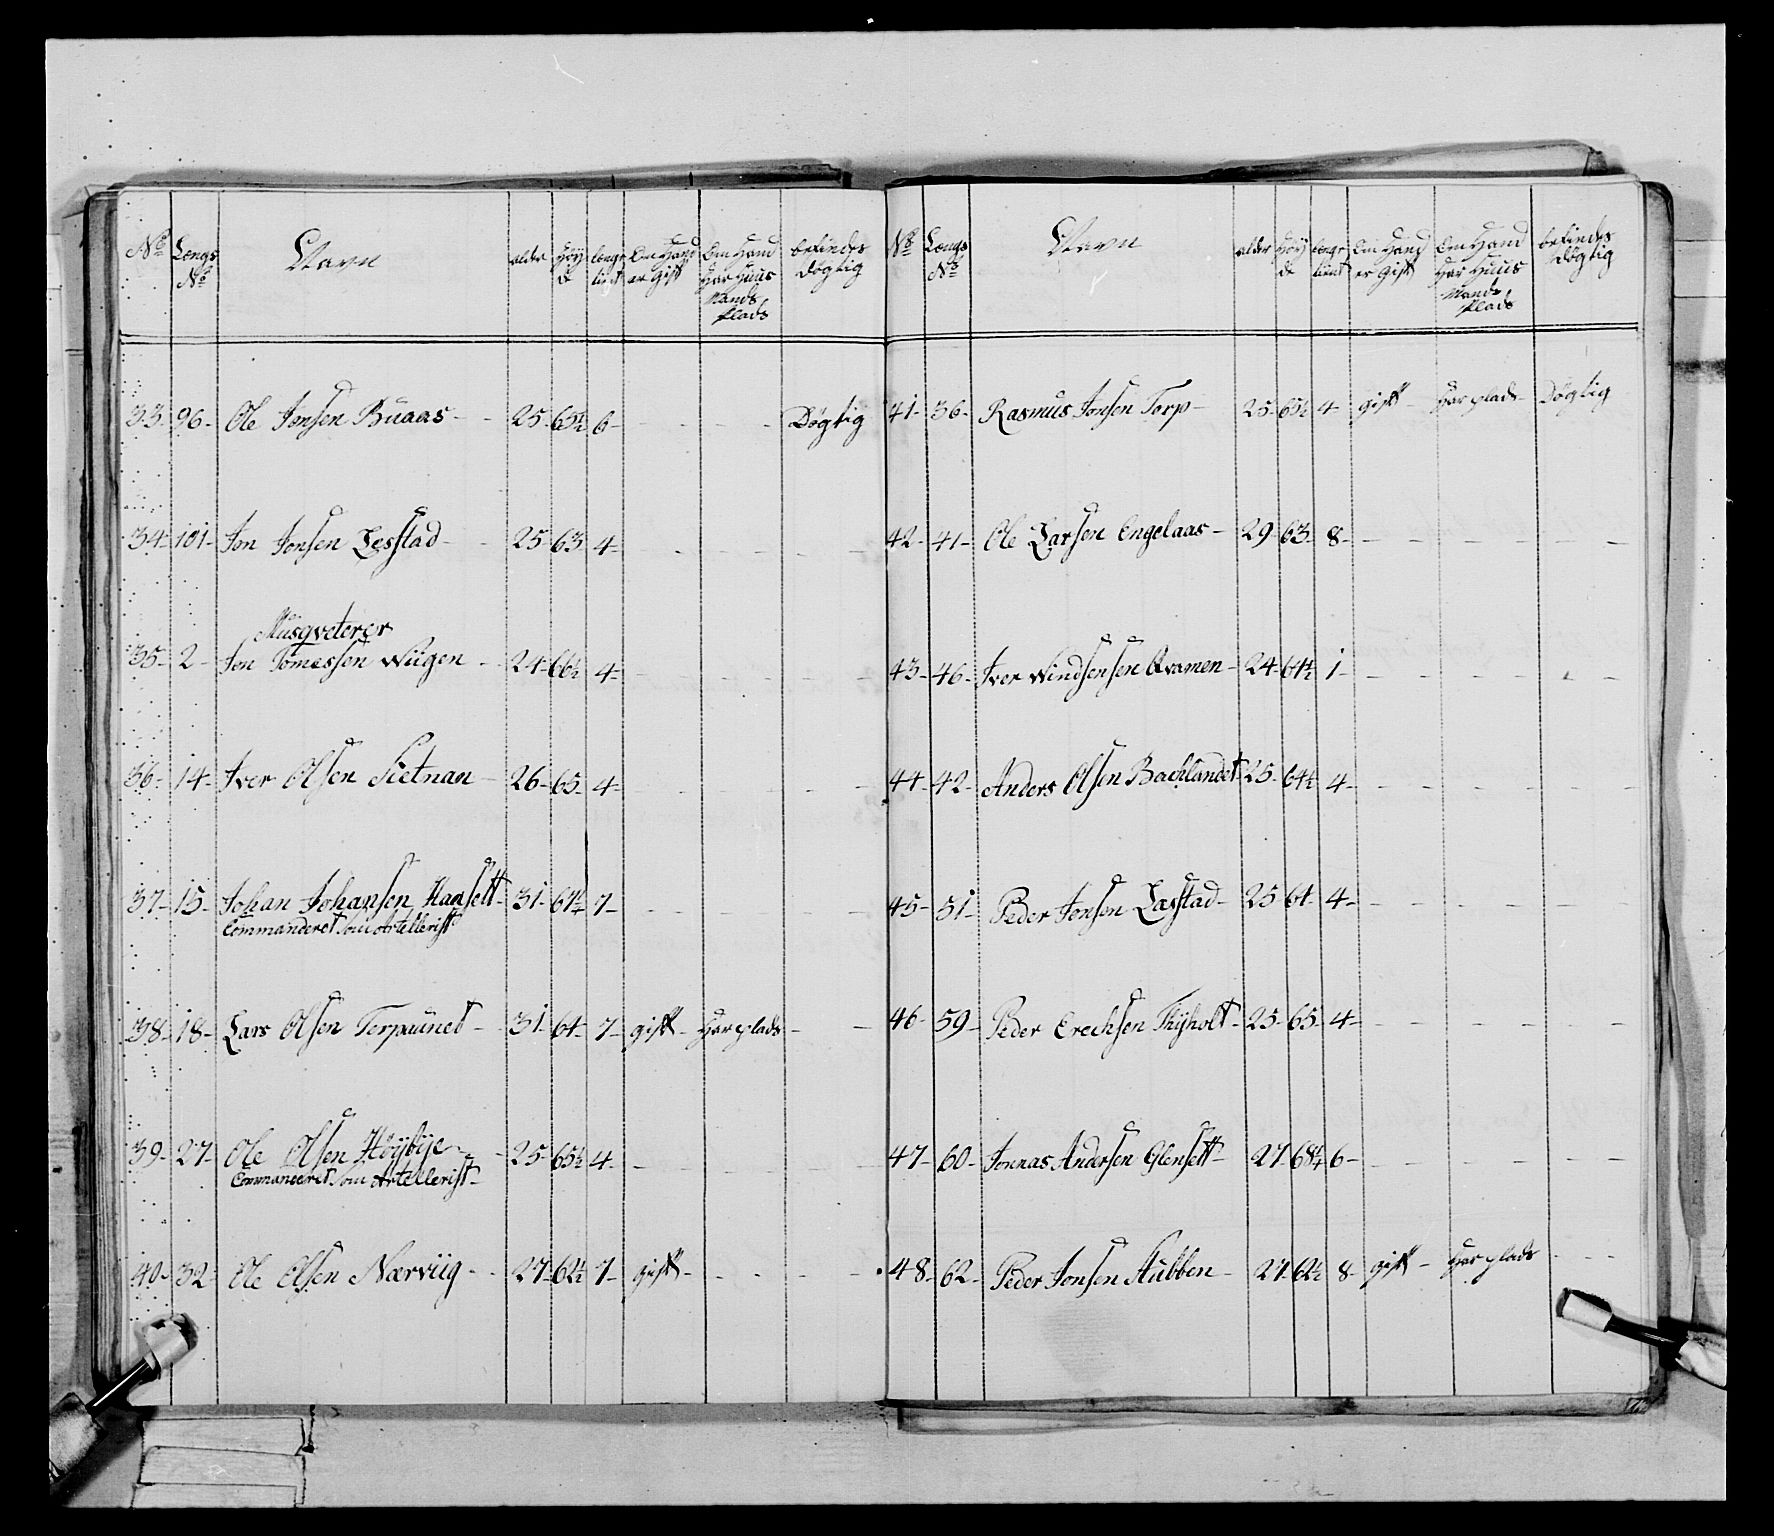 No Længs No Navn alder Høyde længe tient Om Hand er gift Om Hand Har Huus Mands plads befindes Døgtig
33- 96- Ole Jonsen Buaas - - 25- 65½ 6- - - - Døgtig
34- 101- Jon Jonsen Lesstad - - 25- 63- 4- - - -
Musqveterer
35- 2- Jon Tomassen Wügen - 24- 66½ 4- - - -
36- 14- Iver Olsen Sietnan - 26- 65- 4- - - -
37- 15- Johan Johansen Hansett - 31- 67¼ 7- - - -
Commanderet som Artellerist
38- 18- Lars Olsen Terpaunet - 31- 64- 7- gift - Har plads - -
39- 27- Ole Olsen Höÿbÿe - - 25- 65½ 4- - - -
Commanderet som Artellerist -
40- 32- Ole Olsen Nærviig - - 27- 62½ 7- gift - - - -
No Længs No Navn alder Høyde længe tient Om Hand er Gift Om Hand Har Huus Mands plads befindes Døgtig
41- 36- Rasmus Jonsen Torp - 25- 65½ 4- gift - Har plads Døgtig
42- 41- Ole Larsen Engelaas - 29- 63- 8- - - -
43- 46- Iver Windsensen Qvamen - 24- 64½ 1- - - -
44- 42- Anders Olsen Bachlandet - 25- 64½ 4- - - -
45- 51- Peder Jonsen Lasstad - 25- 64- 4- - - -
46- 59- Peder Erechsen Thÿholt - 25- 65- 4- - - -
47- 60- Jonnas Andersen Glensett - 27- 68¼ 6- - - -
48- 62- Peder Jonsen Stubben - 27- 62½ 8- gift - Har plads - - -